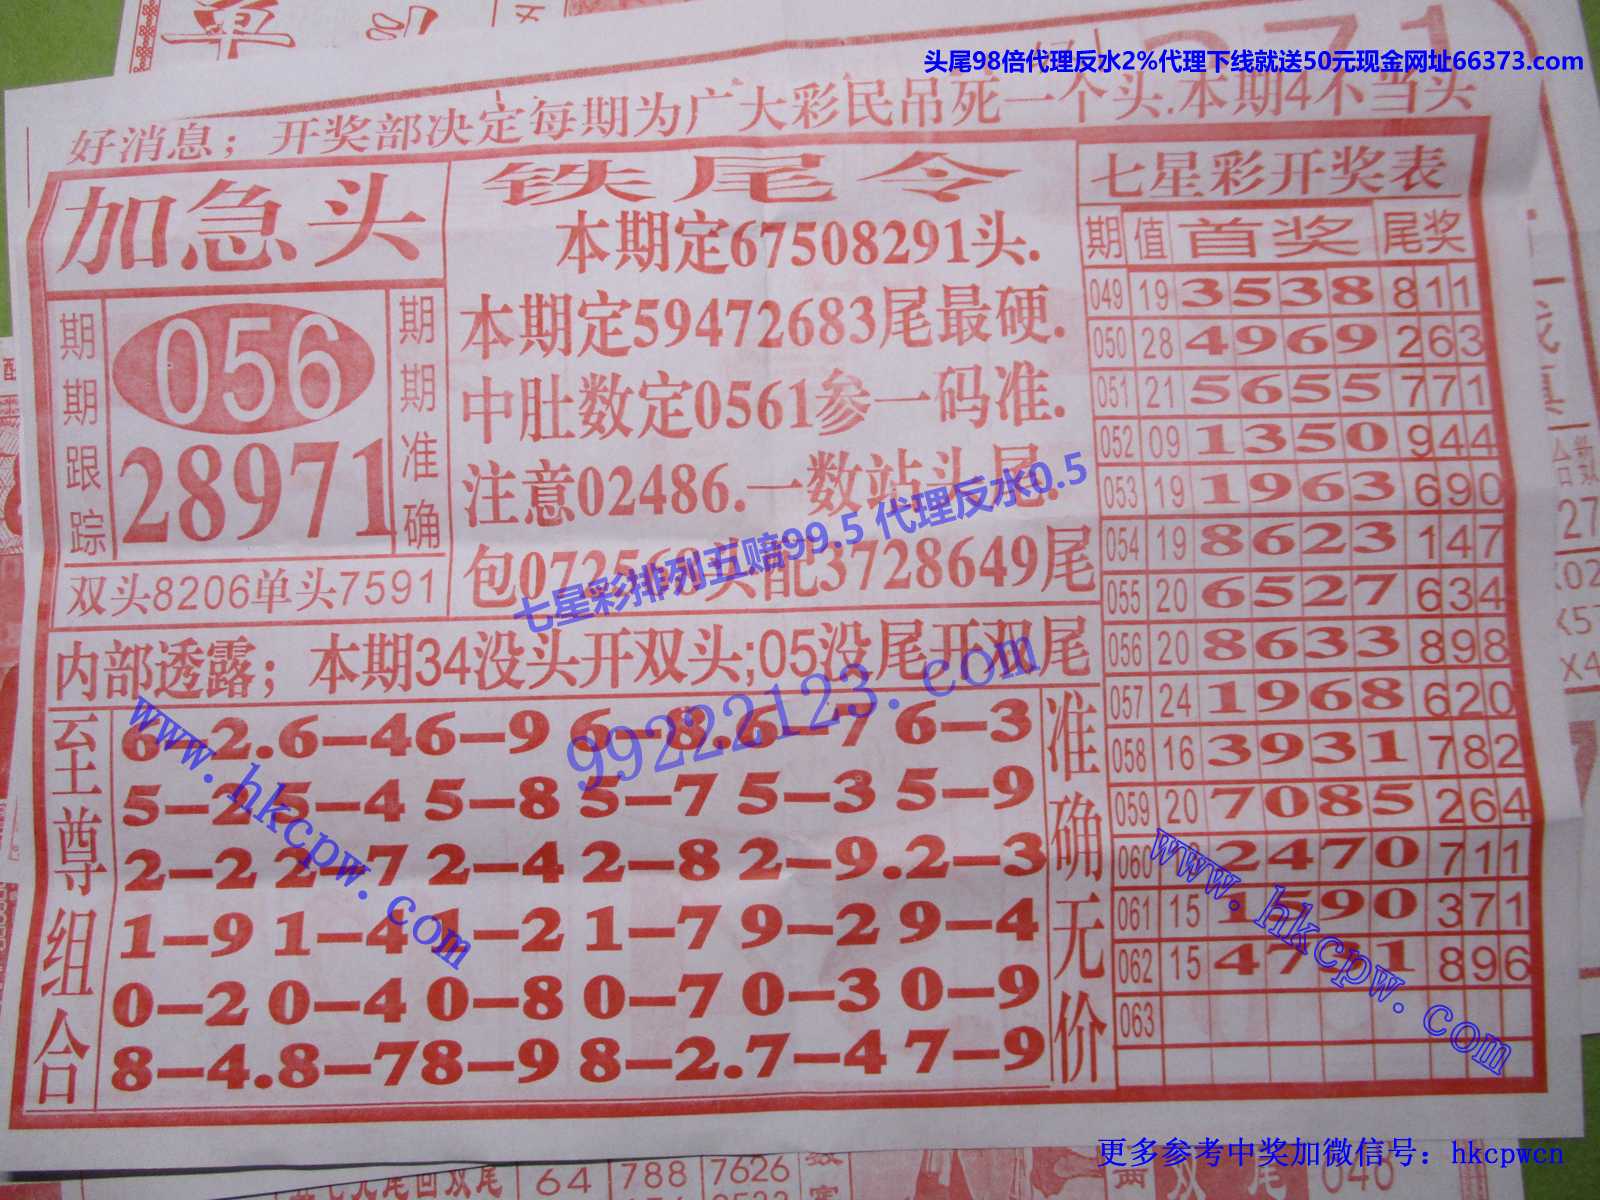 头尾98倍代理反水2%代理下线就送50元现金网址66373.com
好消息；开奖部决定每期为广大彩民吊死一个头.本期4不当头
加急头
期期跟踪
056
28971
期期准确
双头8206单头7591
铁尾令
本期定67508291头.
本期定59472683尾最硬.
中肚数定0561参一码准.
注意02486.一数站头尾.
七星彩排列五赔99.5 代理反水0.5
配3728649尾
内部透露；本期34没头开双头;05没尾开双尾
99222123.com
至尊组合
6-2.6-46-9 6-8.6-7 6-3
5-2 5-4 5-8 5-7 5-3 5-9
2-2 2-7 2-4 2-8 2-9.2-3
1-9 1-4 1-2 1-7 9-2 9-4
0-2 0-4 0-8 0-7 0-3 0-9
8-4.8-78-9 8-2.7-4 7-9
准确无价
www.hkcpw.com
七星彩开奖表
期 值 首奖 尾奖
049 19 3538 811
050 28 4969 263
051 21 5655 771
052 09 1350 944
053 19 1963 690
054 19 8623 147
055 20 6527 634
056 20 8633 898
057 24 1968 620
058 16 3931 782
059 20 7085 264
060 2470 711
061 15 1590 371
062 15 4721 896
063
www.hkcpw.com
更多参考中奖加微信号：hkcpwcn
64 788 7626